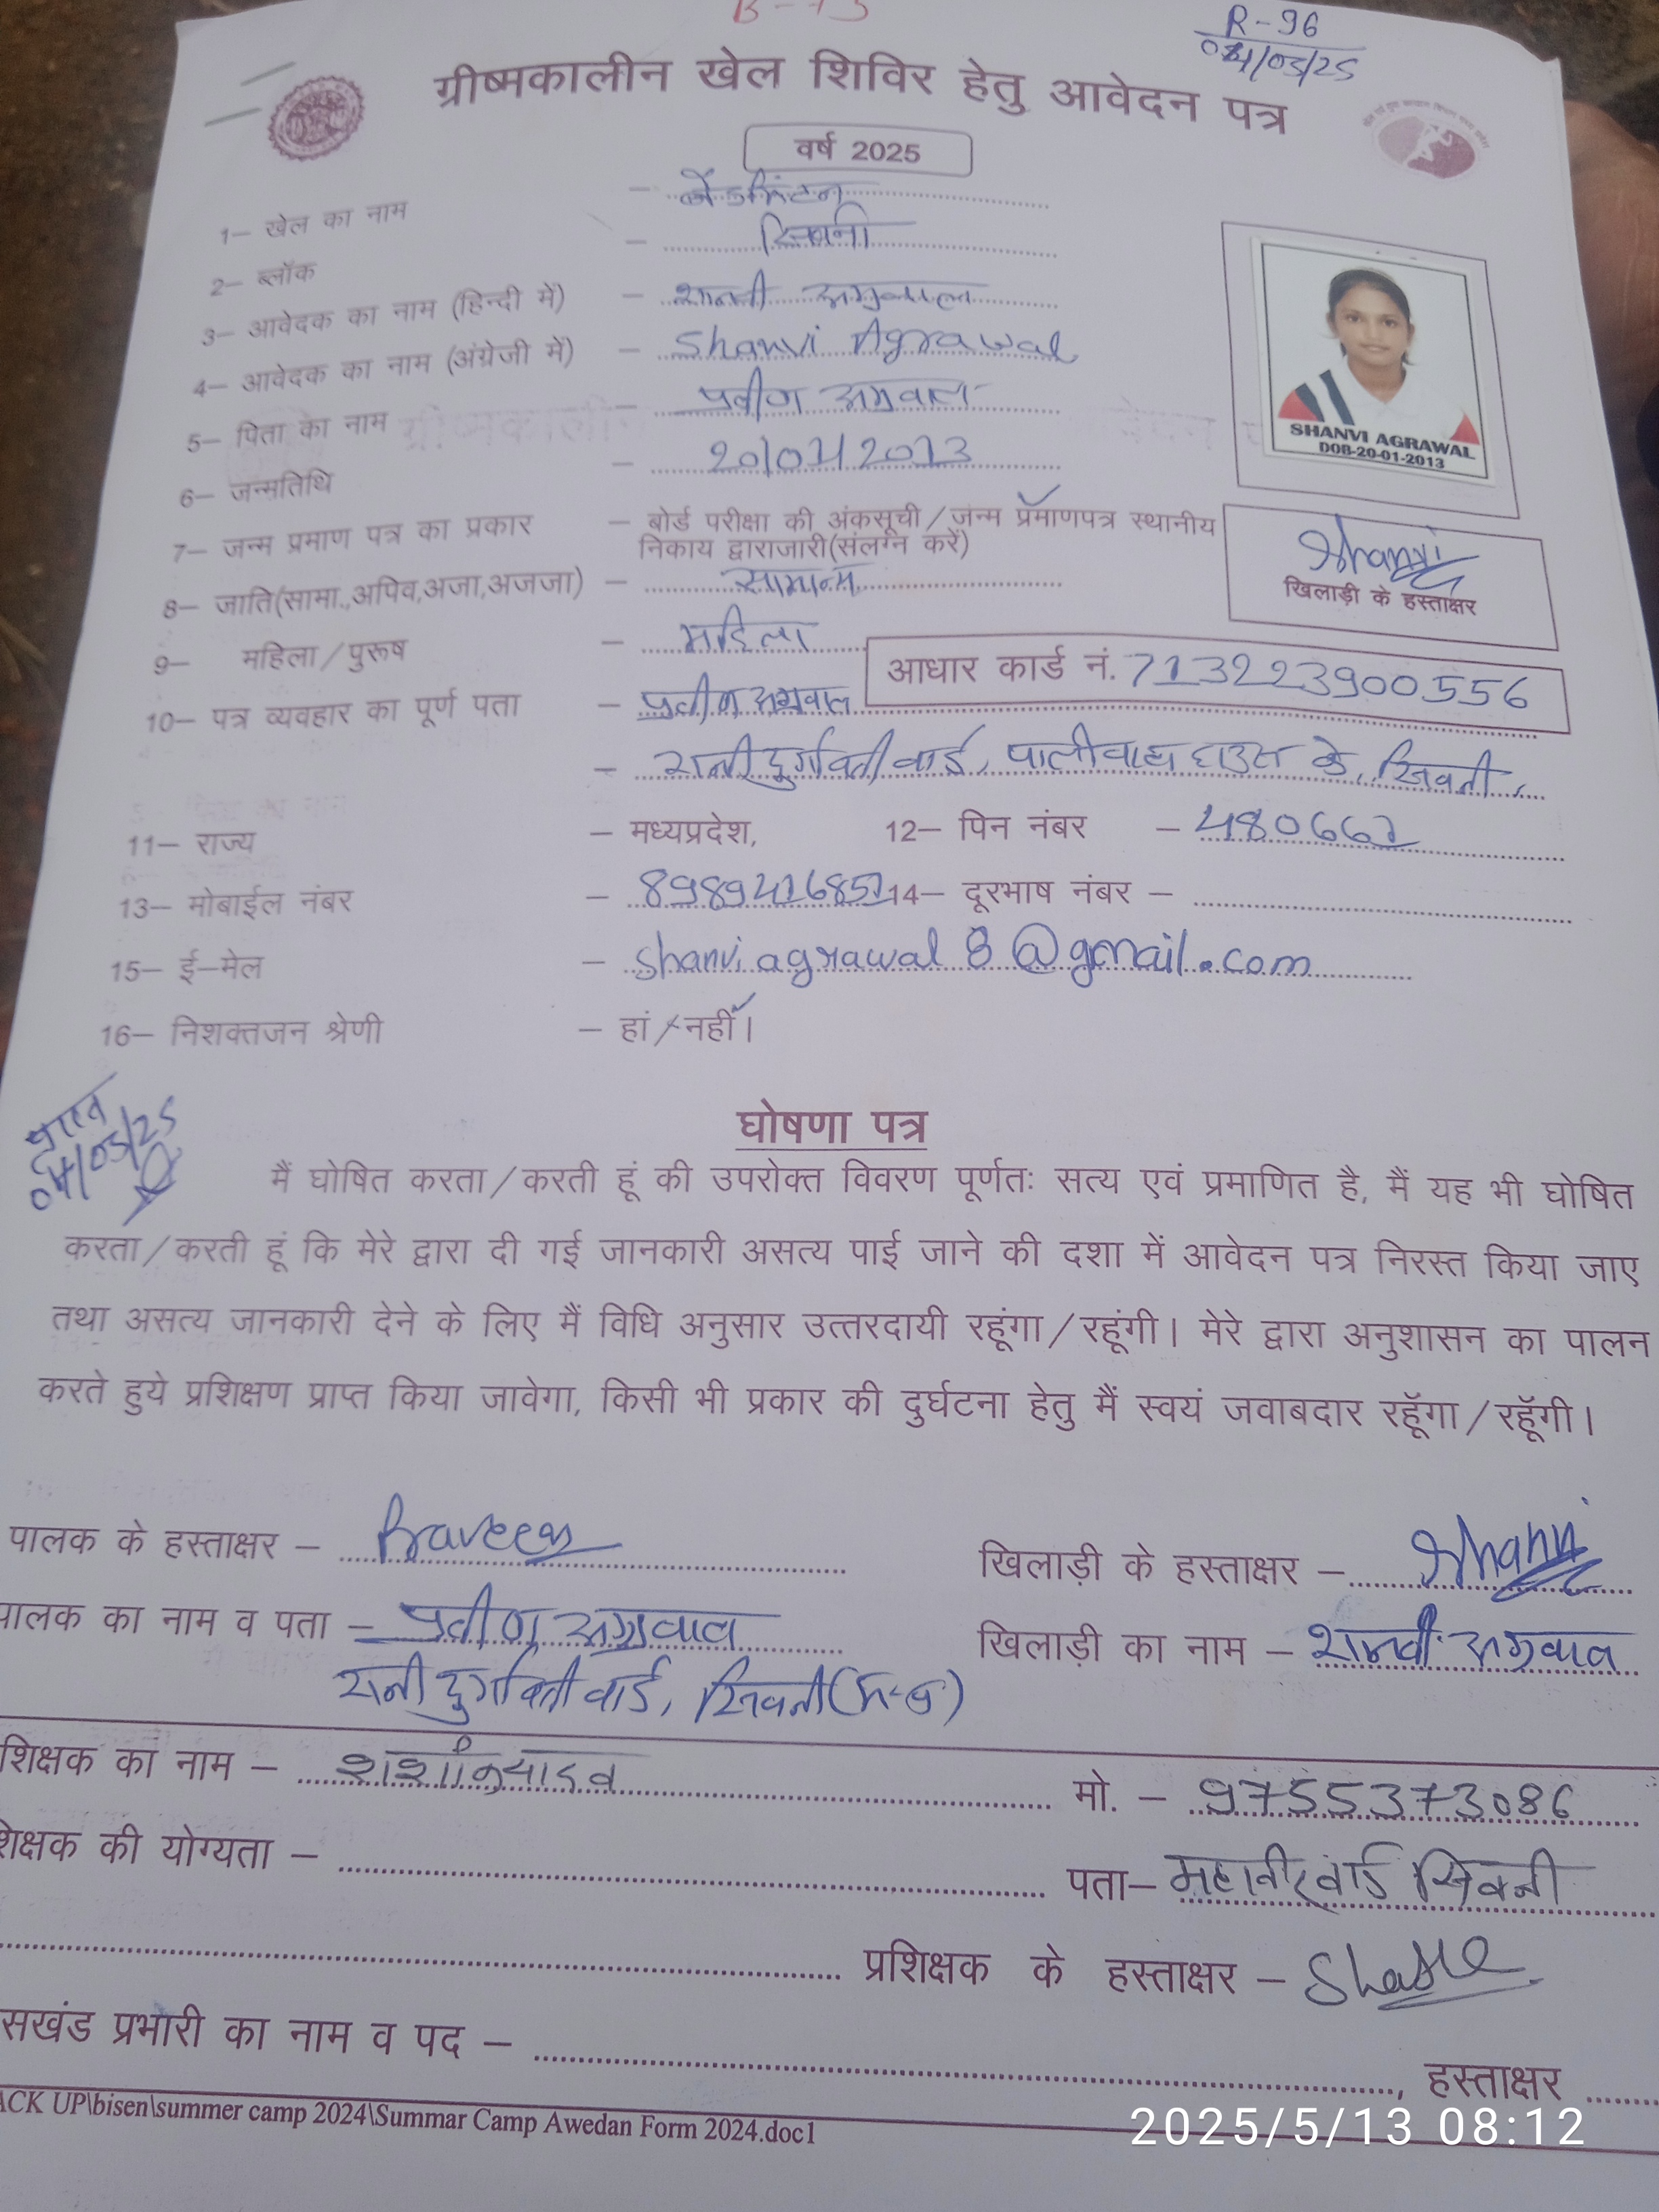 B-13
R-96
04/05/25
ग्रीष्मकालीन खेल शिविर हेतु आवेदन पत्र
वर्ष 2025
1– खेल का नाम – बैडमिंटन
2– ब्लॉक – सिवनी
3– आवेदक का नाम (हिन्दी में) – शानवी अग्रवाल
4– आवेदक का नाम (अंग्रेजी में) – Shanvi Agrawal
5– पिता का नाम – प्रवीण अग्रवाल
6– जन्मतिथि – 20/01/2013
SHANVI AGRAWAL
DOB-20-01-2013
7– जन्म प्रमाण पत्र का प्रकार – बोर्ड परीक्षा की अंकसूची/जन्म प्रमाणपत्र स्थानीय
निकाय द्वाराजारी(संलग्न करें)
Shanvi
खिलाड़ी के हस्ताक्षर
8– जाति(सामा.,अपिव,अजा,अजजा) – सामान्य
9– महिला/पुरूष – महिला
आधार कार्ड नं. 713223900556
10– पत्र व्यवहार का पूर्ण पता – प्रवीण अग्रवाल
– रानी दुर्गावती वार्ड, हाउस के, सिवनी,
11– राज्य – मध्यप्रदेश, 12– पिन नंबर – 480661
13– मोबाईल नंबर – 8989416851 14– दूरभाष नंबर –
15– ई–मेल – shanviagrawal8@gmail.com
16– निशक्तजन श्रेणी – हां/नहीं।
प्राप्त
04/05/25
घोषणा पत्र
मैं घोषित करता/करती हूं की उपरोक्त विवरण पूर्णतः सत्य एवं प्रमाणित है, मैं यह भी घोषित
करता/करती हूं कि मेरे द्वारा दी गई जानकारी असत्य पाई जाने की दशा में आवेदन पत्र निरस्त किया जाए
तथा असत्य जानकारी देने के लिए मैं विधि अनुसार उत्तरदायी रहूंगा/रहूंगी। मेरे द्वारा अनुशासन का पालन
करते हुये प्रशिक्षण प्राप्त किया जावेगा, किसी भी प्रकार की दुर्घटना हेतु मैं स्वयं जवाबदार रहूॅगा/रहूॅगी।
पालक के हस्ताक्षर – Praveen
खिलाड़ी के हस्ताक्षर – Shanvi
पालक का नाम व पता – प्रवीण अग्रवाल
खिलाड़ी का नाम – शानवी अग्रवाल
रानी दुर्गावती वार्ड, सिवनी (म-प्र)
शिक्षक का नाम – शशांक यादव
मो. – 9755373086
शिक्षक की योग्यता –
पता– महावीर वार्ड सिवनी
प्रशिक्षक के हस्ताक्षर –
सखंड प्रभारी का नाम व पद – , हस्ताक्षर
ACK UP\bisen\summer camp 2024\Summar Camp Awedan Form 2024.doc1
2025/5/13 08:12